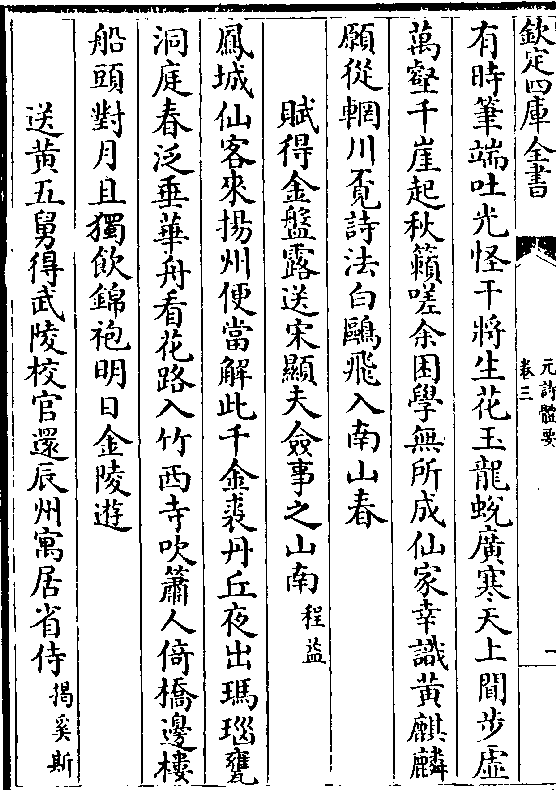 欽定四庫全書
元詩體要
卷三
一
有時筆端吐光怪干將生花玉龍蛻廣寒天上聞步虛
萬壑千崖起秋籟嗟余困學無所成仙家幸識黃麒麟
願從輞川覔詩法白鷗飛入南山春
賦得金盤露送宋顯夫僉事之山南 程益
鳳城仙客來揚州便當解此千金裘丹丘夜出瑪瑙甕
洞庭春泛垂華舟看花路入竹西寺吹簫人倚橋邊樓
船頭對月且獨飲錦袍明日金陵遊
送黃五舅得武陵校官還辰州寓居省侍 揭奚斯